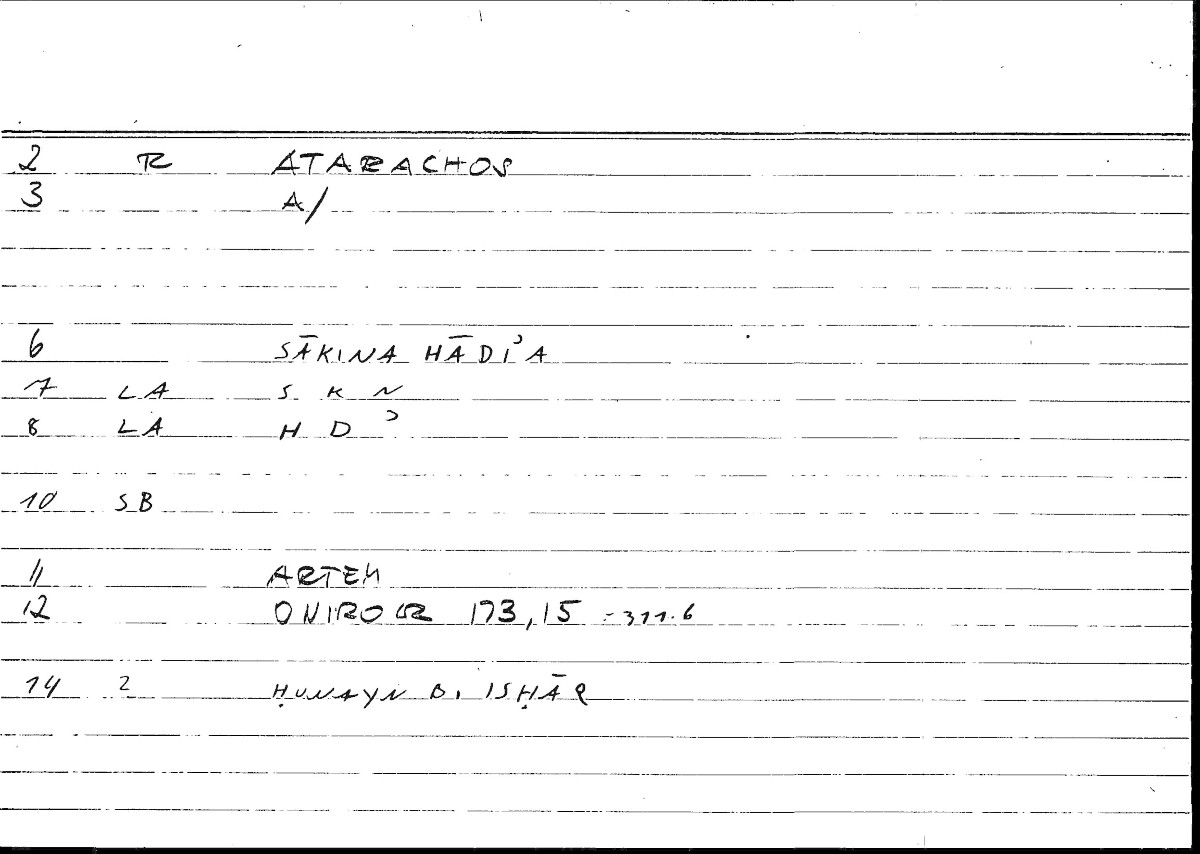 2 R ATARACHOS
3 A/
6 SĀKINA HĀDIʾA
7 LA S K N
8 LA H D ʾ
10 SB
11 ARTEM
12 ONIROCR 173,15 = 311.6
14 2 ḤUNAYN B. ISḤĀQ